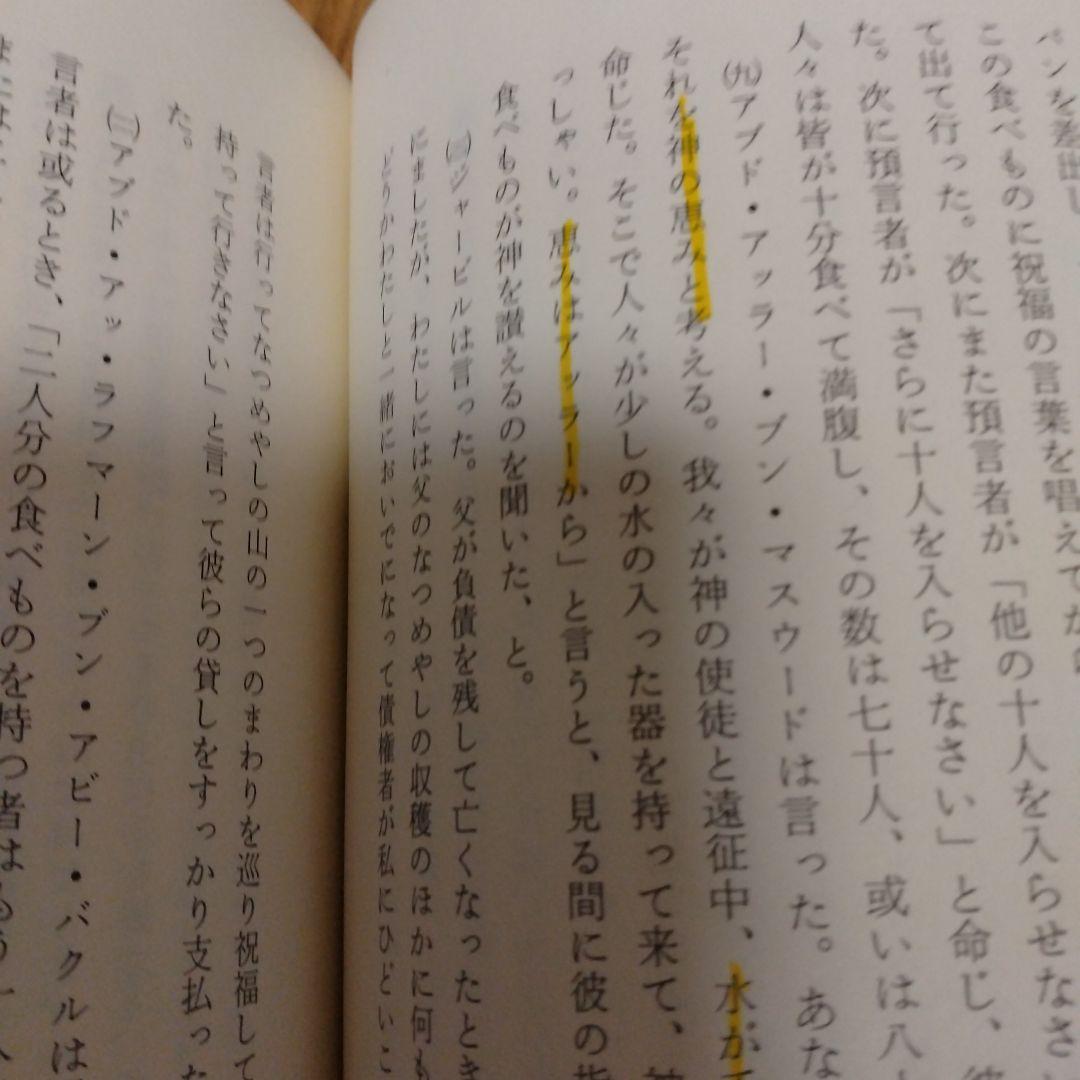 ペンを差出し
この食べものに祝福の言葉を唱えてか
て出て行った。次にまた預言者が「他の十人を入らせなさ
た。次に預言者が「さらに十人を入らせなさい」と命じ、彼
人々は皆が十分食べて満腹し、その数は七十人、或いは八
(九)アブド・アッラー・ブン・マスウードは言った。あな
それを神の恵みと考える。我々が神の使徒と遠征中、水が
命じた。そこで人々が少しの水の入った器を持って来て、
っしゃい。恵みはアッラーから」と言うと、見る間に彼の指
食べものが神を讃えるのを聞いた、と。
ジャービルは言った。父が負債を残して亡くなったとき
にましたが、わたしには父のなつめやしの収穫のほかに何も
どりかわたしと一緒においでになって債権者が私にひどいこ
言者は行ってなつめやしの山の一つのまわりを巡り祝福して
持って行きなさい」と言って彼らの貸しをすっかり支払った
た。
アブド・アッ・ラフマーン・ブン・アビー・バクルは
言者は或るとき、「二人分の食べものを持つ者はもう一人